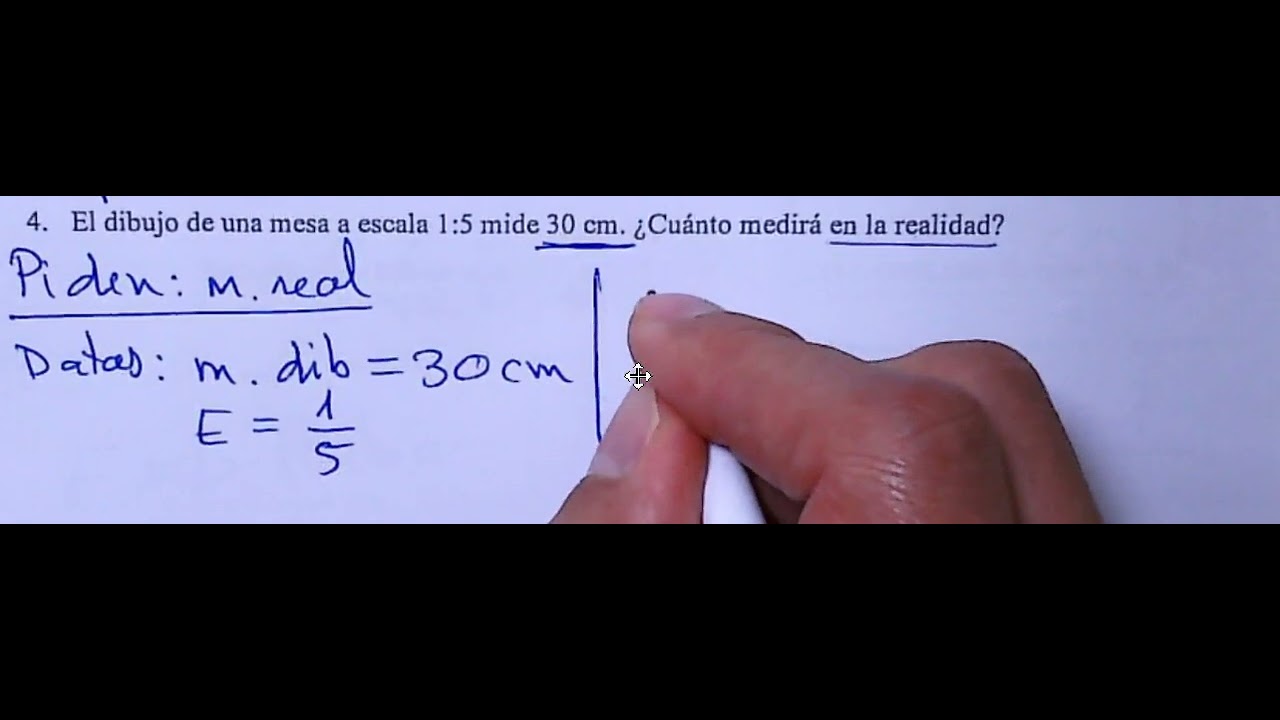 4. El dibujo de una mesa a escala 1:5 mide 30 cm. ¿Cuánto medirá en la realidad?
Piden: m. real
Datos: m. dib = 30 cm
E = 1/5